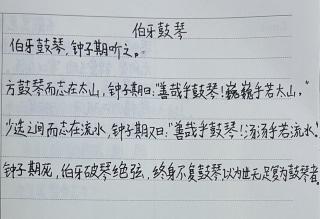 伯牙鼓琴
伯牙鼓琴,钟子期听之。
方鼓琴而志在太山,钟子期曰:"善哉乎鼓琴!巍巍乎若太山,"
少选之间而志在流水,钟子期又曰:"善哉乎鼓琴!汤汤乎若流水."
钟子期死,伯牙破琴绝弦,终身不复鼓琴以为世无足复为鼓琴者